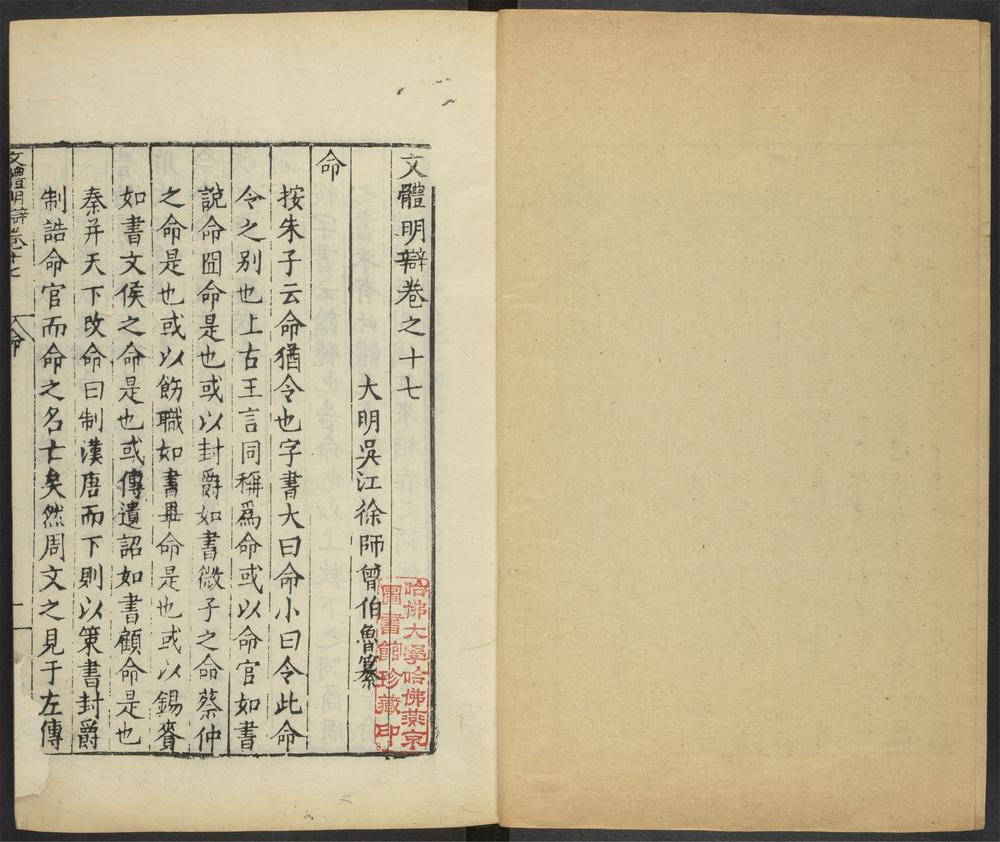 文體明辯卷之十七
大明吳江徐師曾伯魯纂
命
按朱子云命猶令也字書大曰命小曰令此命
令之别也上古王言同稱爲命或以命官如書
說命冏命是也或以封爵如書微子之命蔡仲
之命是也或以飭職如書畢命是也或以錫賚
如書文侯之命是也或傳遺詔如書顧命是也
秦并天下改命曰制漢唐而下則以策書封爵
制誥命官而命之名亡矣然周文之見于左傳
文體明辯卷十七
命
哈佛大學哈佛燕京
圖書館珍藏印